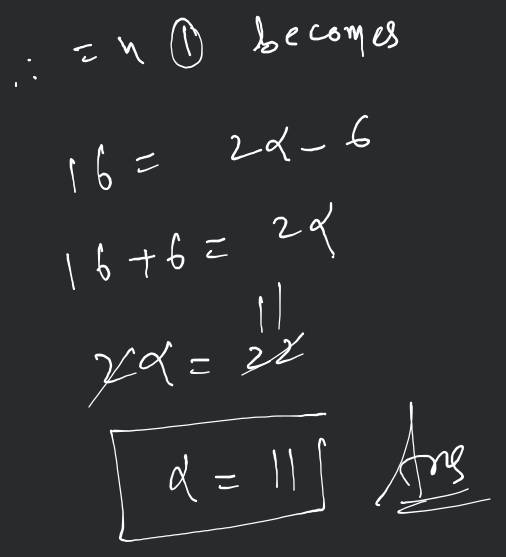 ∴ =n ① becomes
16 = 2α - 6
16 + 6 = 2α
11
2α = 22
α = 11 Ans